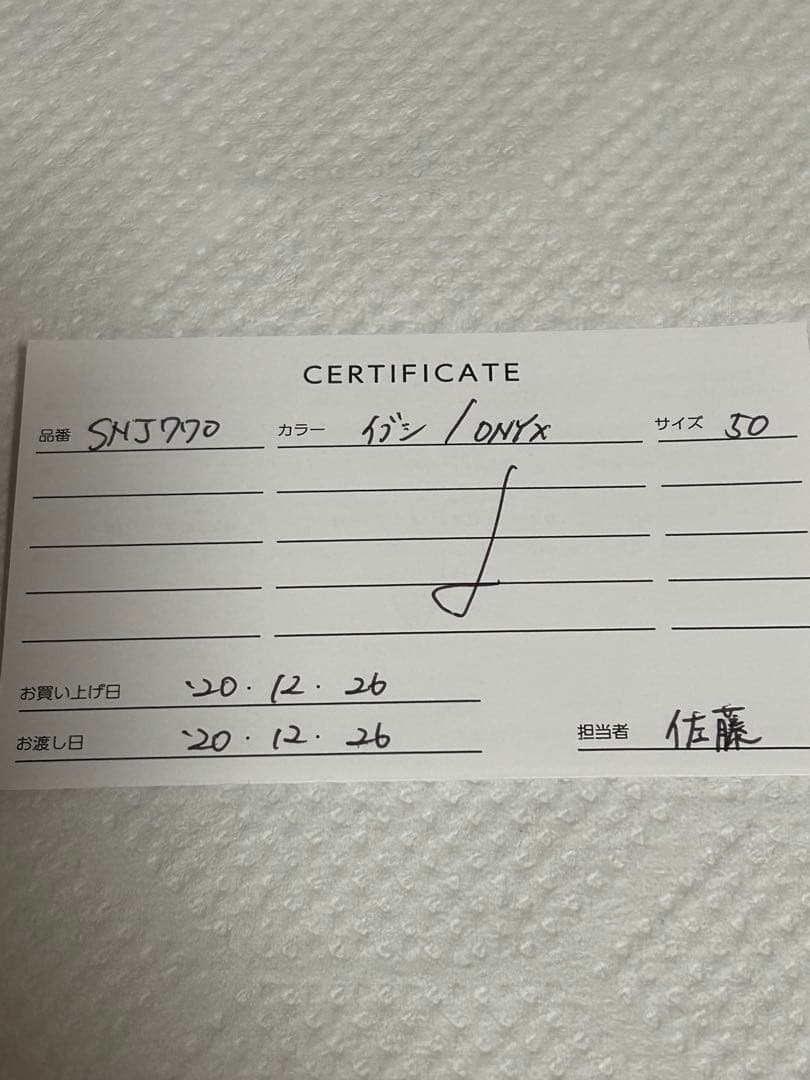 CERTIFICATE
品番 SNJ770 カラー イブシ / ONYX サイズ 50
お買い上げ日 '20. 12. 26
お渡し日 '20. 12. 26
担当者 佐藤